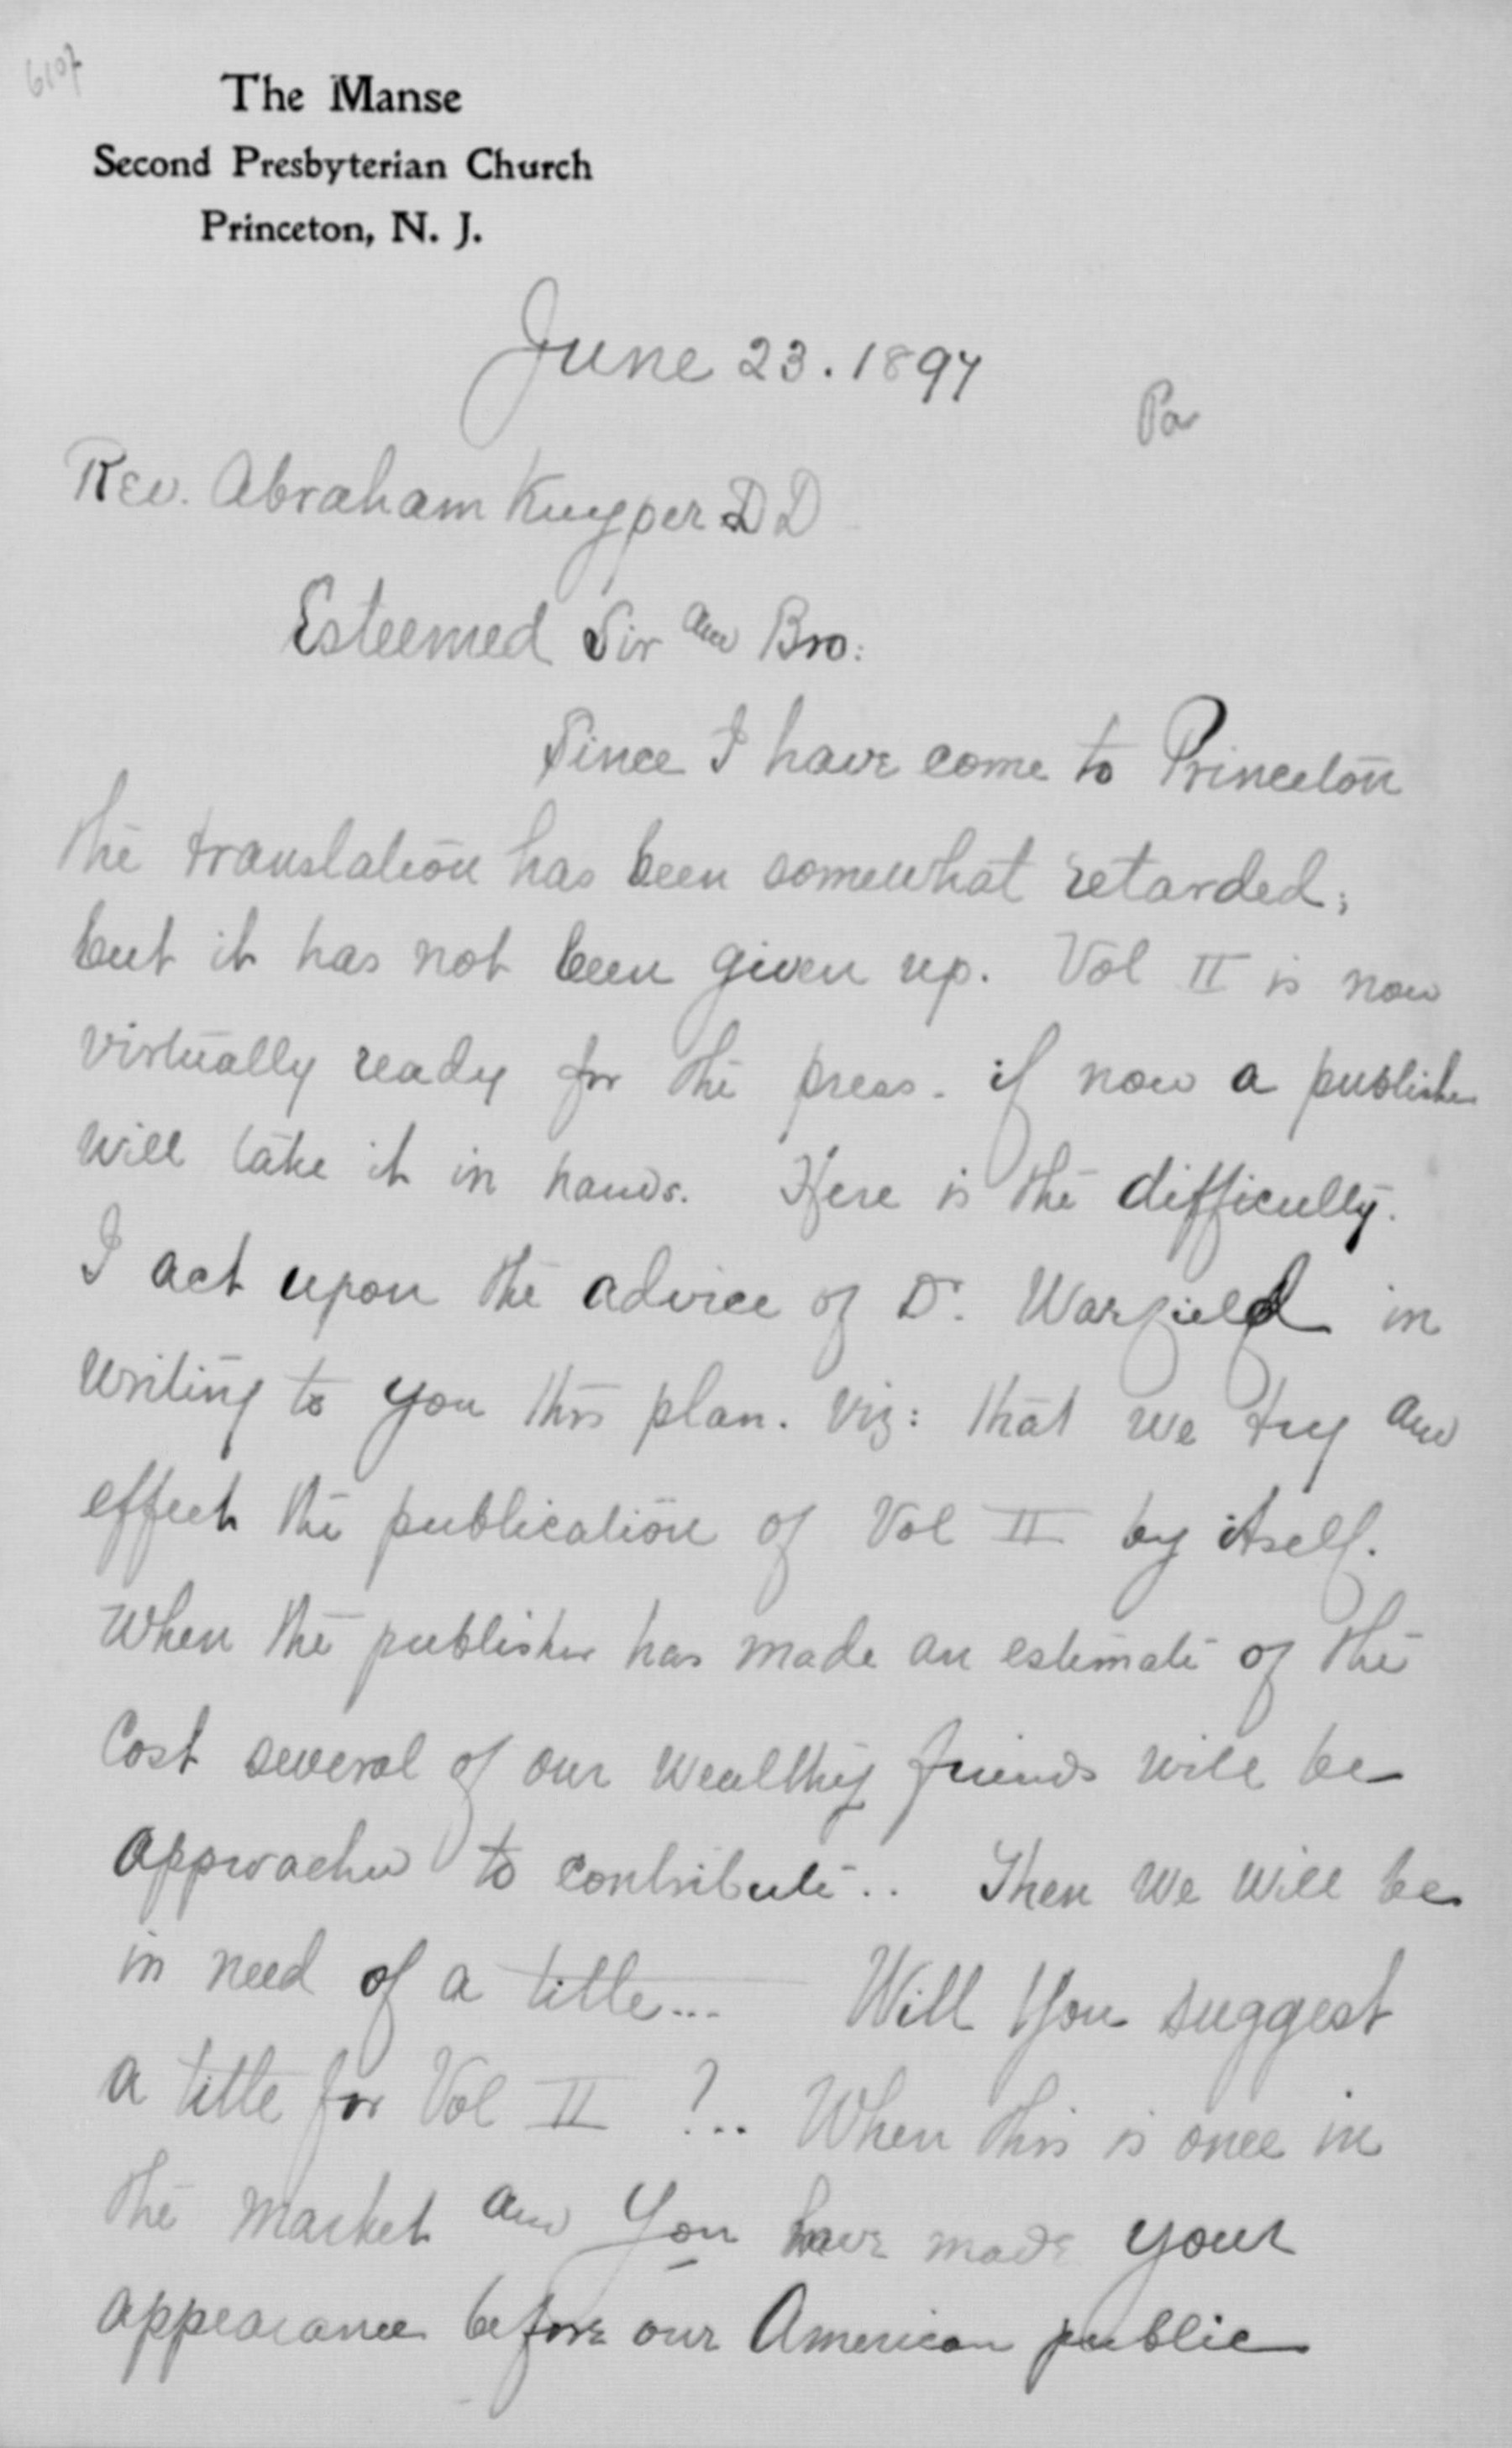 6107
The Manse
Second Presbyterian Church
Princeton, N. J.
June 23. 1897
Rev. Abraham Kuyper DD
Esteemed Sir and Bro:
Since I have come to Princeton
the translation has been somewhat retarded;
but it has not been given up. Vol II is now
virtually ready for the press. if now a publisher
will take it in hands. Here is the difficulty.
I act upon the advice of Dr. Warfield in
writing to you this plan. viz: that we try and
effect the publication of Vol II by itself.
When the publisher has made an estimate of the
Cost several of our wealthy friends will be
approached to contribute.. Then we will be
in need of a title... Will you suggest
a title for Vol II ?.. When this is once in
the market and you have made your
appearance before our American public